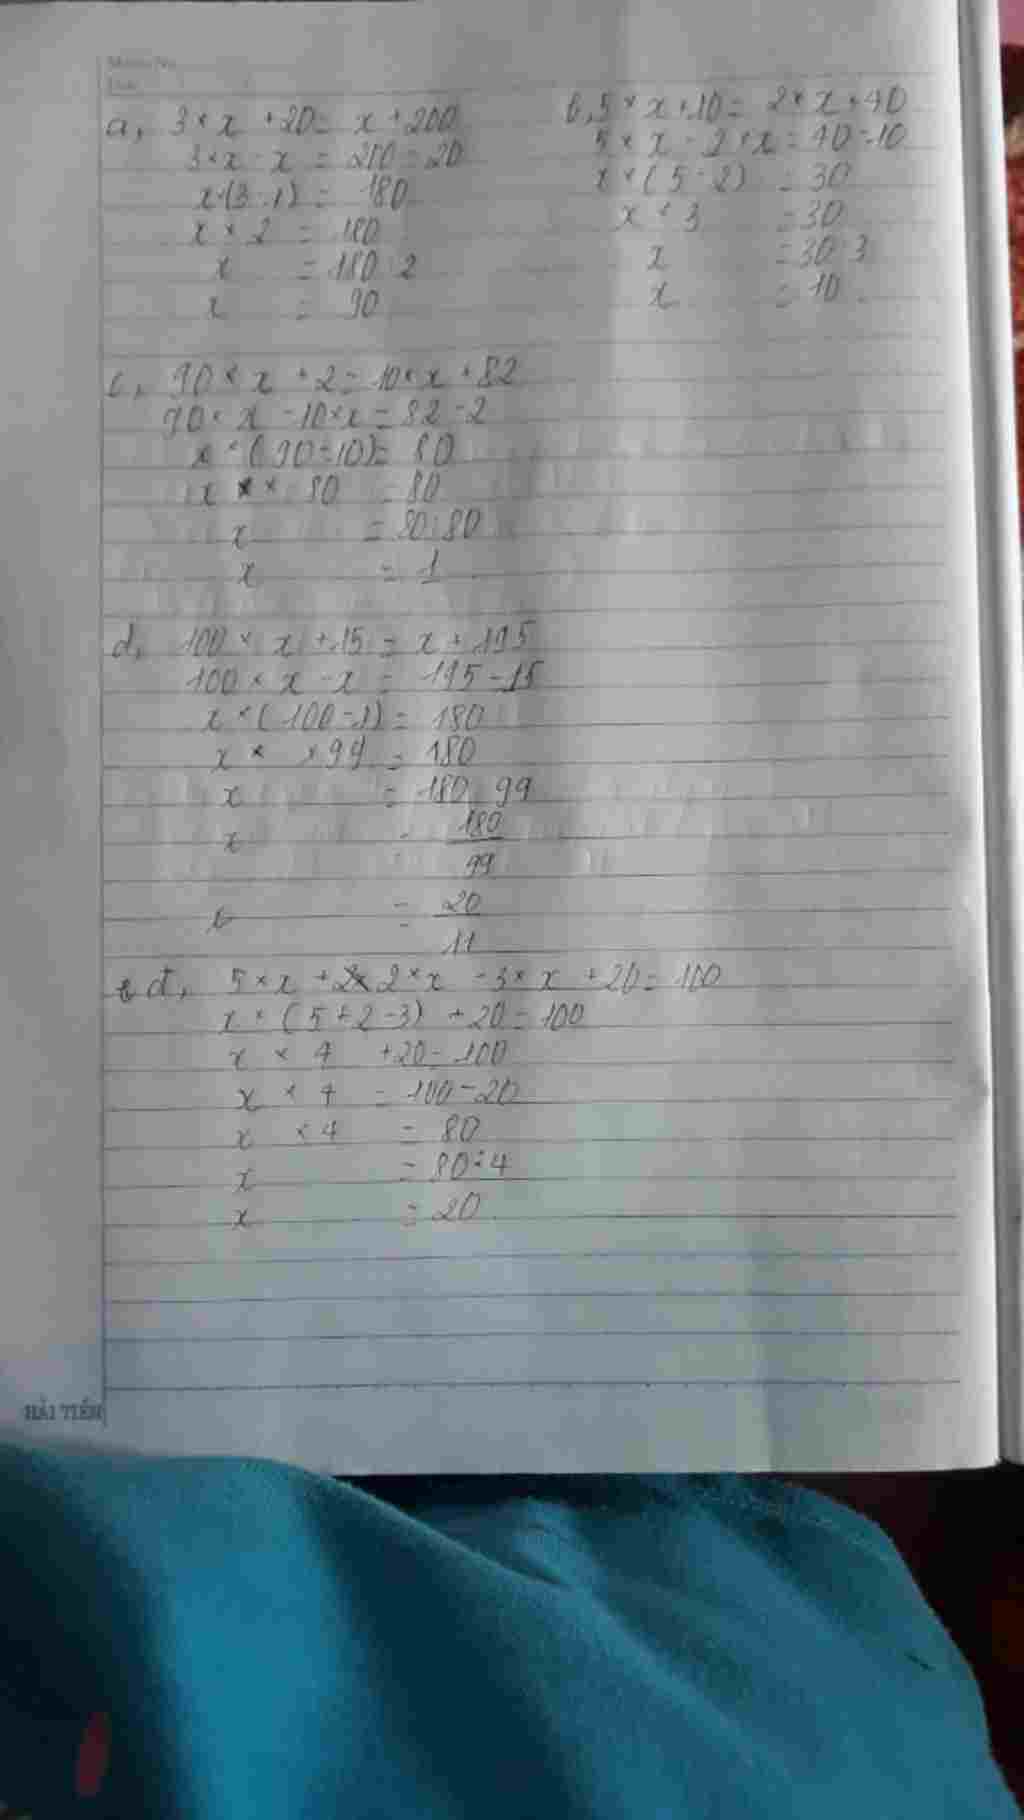 a, 3 × x + 20 = x + 200
3 × x - x = 200 - 20
x × (3 - 1) = 180
x × 2 = 180
x = 180 : 2
x = 90
b, 5 × x + 10 = 2 × x + 40
5 × x - 2 × x = 40 - 10
x × (5 - 2) = 30
x × 3 = 30
x = 30 : 3
x = 10
c, 90 × x + 2 = 10 × x + 82
90 × x - 10 × x = 82 - 2
x × (90 - 10) = 80
x × 80 = 80
x = 80 : 80
x = 1
d, 100 × x + 15 = x + 195
100 × x - x = 195 - 15
x × (100 - 1) = 180
x × × 99 = 180
x = 180 : 99
x = 180/99
x = 20/11
đ, 5 × x + 2 × x - 3 × x + 20 = 100
x × (5 + 2 - 3) + 20 = 100
x × 4 + 20 = 100
x × 4 = 100 - 20
x × 4 = 80
x = 80 : 4
x = 20
HẢI TIẾN